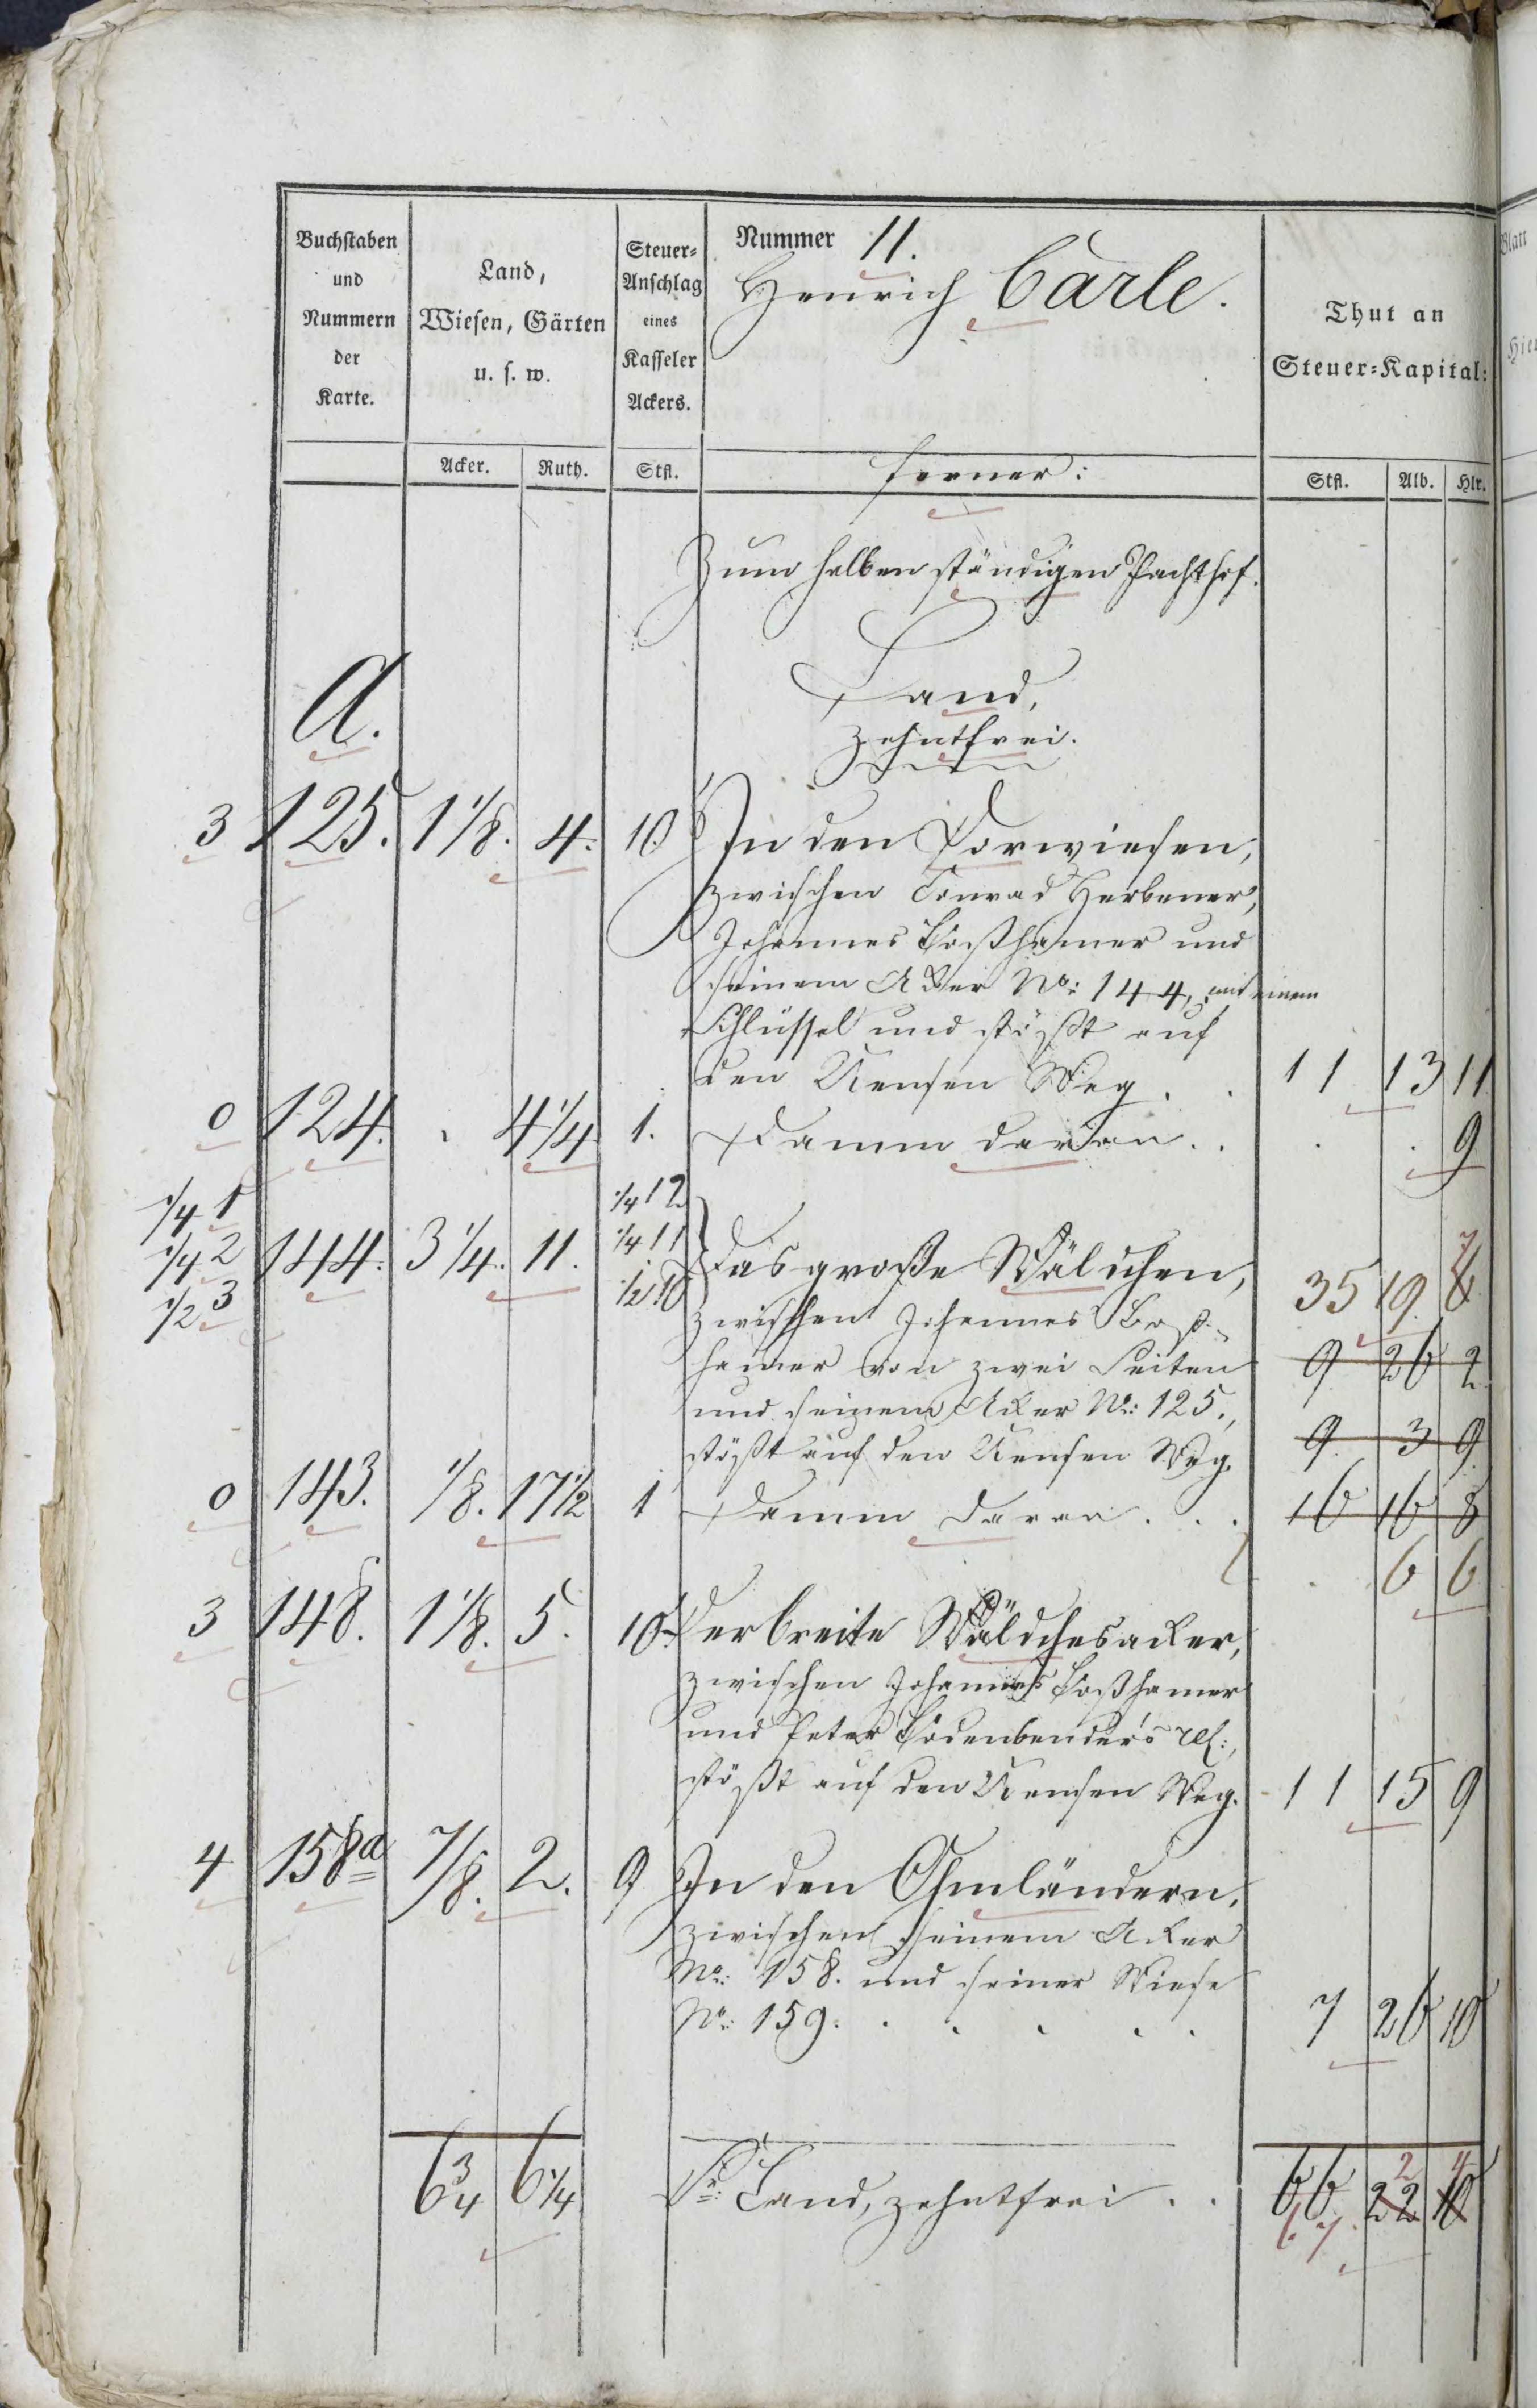 Buchstaben und Nummern der Karte.
Land, Wiesen, Gärten u. s. w.
Steuer-Anschlag eines Kasseler Ackers.
Nummer 11.
Henrich Carle.
Thut an Steuer-Kapital:
Acker. Ruth. Stfl. ferner: Stfl. Alb. Hlr.
Zum halben ständigen Pachthof.
Land,
A.
zehntfrei.
3 125. 1 1/8. 4. 10 In den Vorwiesen,
zwischen Conrad Herbener,
Johannes Boßhamer und
seinem Acker No: 144, mit einem
Schlüssel und stößt auf
den Weg . . 11 13 11
0 124. . 4 1/4 1. Damm daran . . . . 9
1/4 1 1/4 12
1/4 2 144. 3 1/4. 11. 1/4 11 Das große Wäldchen,
1/2 3 1/2 10 35 19 6 7
zwischen Johannes Boß-
hamer von zwei Seiten 9 26 2
und seinem Acker No: 125.,
stößt auf den Weg. 9 3 9
0 143. 1/8. 17 1/2 1 Damm daran . . . 16 16 8
. 6 6
3 148. 1 1/8. 5. 10 Der breite Wäldchesacker,
zwischen Johannes Boßhamer
und Peter Bodenbender's rel:,
stößt auf den Weg. 11 15 9
4 158a 7/8. 2. 9 In den Ohmländern,
zwischen seinem Acker
No: 158. und seiner Wiese
No: 159. . . . . . 7 26 10
6 3/4 6 1/4 Sa: Land, zehntfrei . . 66 22 10
67 2 4
Blatt